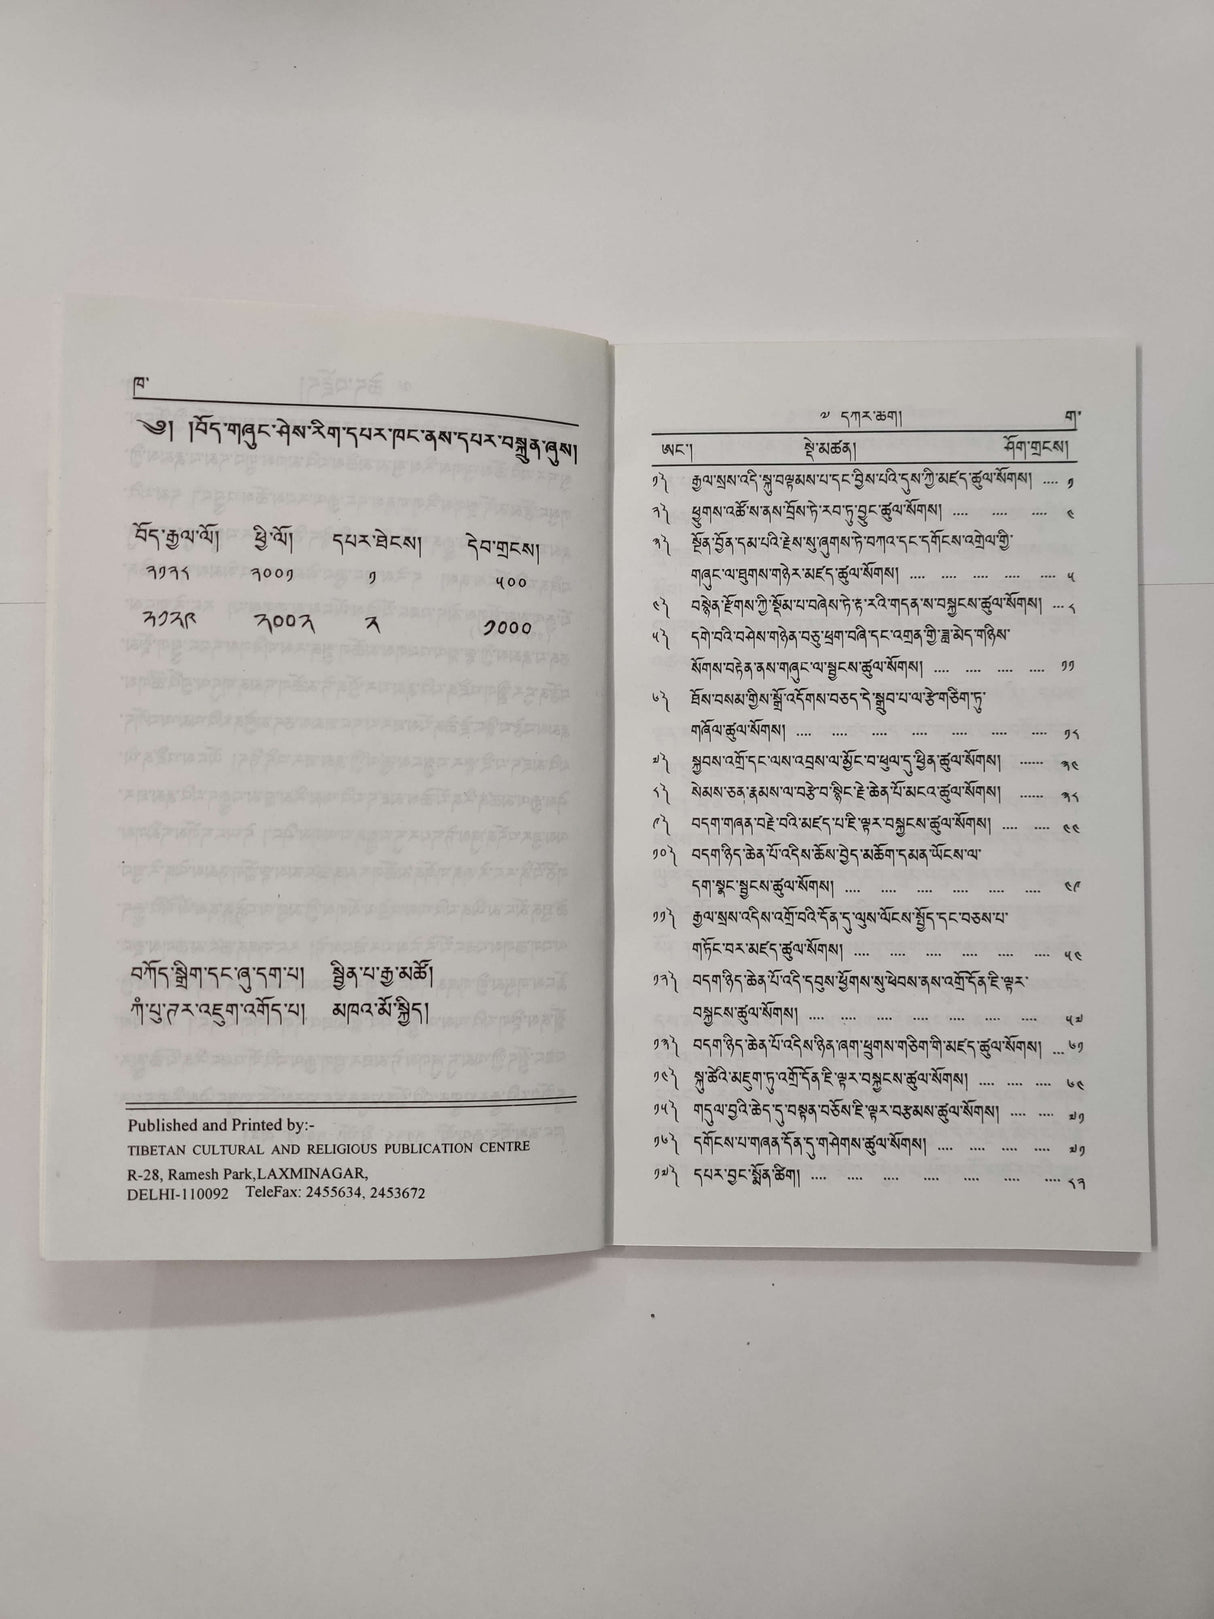 ཁ་
༄༅། །བོད་གཞུང་ཤེས་རིག་དཔར་ཁང་ནས་དཔར་བསྐྲུན་ཞུས།
བོད་རྒྱལ་ལོ། ཕྱི་ལོ། དཔར་ཐེངས། དེབ་གྲངས།
༢༡༢༨ ༢༠༠༡ ༡ ༥༠༠
༢༡༢༩ ༢༠༠༢ ༢ ༡༠༠༠
བཀོད་སྒྲིག་དང་ཞུ་དག་པ། སྦྱིན་པ་རྒྱ་མཚོ།
ཀཾ་པུ་ཊར་འཇུག་འགོད་པ། མཁའ་མོ་སྐྱིད།
Published and Printed by:-
TIBETAN CULTURAL AND RELIGIOUS PUBLICATION CENTRE
R-28, Ramesh Park,LAXMINAGAR,
DELHI-110092 TeleFax: 2455634, 2453672
༧ དཀར་ཆག། ག་
ཨང་། སྡེ་མཚན། ཤོག་གྲངས།
༡༽ རྒྱལ་སྲས་འདི་སྐུ་བལྟམས་པ་དང་བྱིས་པའི་དུས་ཀྱི་མཛད་ཚུལ་སོགས། .... ༡
༢༽ ཕྱུགས་འཚོ་ས་ནས་བྲོས་ཏེ་རབ་ཏུ་བྱུང་ཚུལ་སོགས། .... .... .... ༤
༣༽ སྔོན་བྱོན་དམ་པའི་རྗེས་སུ་ཞུགས་ཏེ་བཀའ་དང་དགོངས་འགྲེལ་གྱི་
གཞུང་ལ་ཐུགས་གཉེར་མཛད་ཚུལ་སོགས། .... .... .... .... ༥
༤༽ བསྙེན་རྫོགས་ཀྱི་སྡོམ་པ་བཞེས་ཏེ་རྟ་རའི་གདན་ས་བསྐྱངས་ཚུལ་སོགས། ... ༨
༥༽ དགེ་བའི་བཤེས་གཉེན་བཅུ་ཕྲག་བཞི་དང་འགྲན་གྱི་ཟླ་མེད་གཉིས་
སོགས་བརྟེན་ནས་གཞུང་ལ་སྦྱངས་ཚུལ་སོགས། .... .... .... .... ༡༡
༦༽ ཐོས་བསམ་གྱིས་སྒྲོ་འདོགས་བཅད་དེ་སྒྲུབ་པ་ལ་རྩེ་གཅིག་ཏུ་
གཞོལ་ཚུལ་སོགས། .... .... .... .... .... .... .... ༡༨
༧༽ སྐྱབས་འགྲོ་དང་ལས་འབྲས་ལ་མྱོང་བ་ཕུལ་དུ་ཕྱིན་ཚུལ་སོགས། ...... ༣༤
༨༽ སེམས་ཅན་རྣམས་ལ་བརྩེ་བ་སྙིང་རྗེ་ཆེན་པོ་མངའ་ཚུལ་སོགས། ...... ༣༨
༩༽ བདག་གཞན་བརྗེ་བའི་མཛད་པ་ཇི་ལྟར་བསྐྱངས་ཚུལ་སོགས། .... .... ༤༤
༡༠༽ བདག་ཉིད་ཆེན་པོ་འདིས་ཆོས་བྱེད་མཆོག་དམན་ཡོངས་ལ་
དག་སྣང་སྦྱངས་ཚུལ་སོགས། .... .... .... .... .... .... ༤༩
༡༡༽ རྒྱལ་སྲས་འདིས་འགྲོ་བའི་དོན་དུ་ལུས་ལོངས་སྤྱོད་དང་བཅས་པ་
གཏོང་བར་མཛད་ཚུལ་སོགས། .... .... .... .... .... .... ༥༤
༡༢༽ བདག་ཉིད་ཆེན་པོ་འདི་དབུས་ཕྱོགས་སུ་ཕེབས་ནས་འགྲོ་དོན་ཇི་ལྟར་
བསྐྱངས་ཚུལ་སོགས། .... .... .... .... .... .... .... ༥༧
༡༣༽ བདག་ཉིད་ཆེན་པོ་འདིས་ཉིན་ཞག་ཕྲུགས་གཅིག་གི་མཛད་ཚུལ་སོགས། ... ༦༡
༡༤༽ སྐུ་ཚེའི་མཇུག་ཏུ་འགྲོ་དོན་ཇི་ལྟར་བསྐྱངས་ཚུལ་སོགས། .... .... .... ༦༤
༡༥༽ གདུལ་བྱའི་ཆེད་དུ་བསྟན་བཅོས་ཇི་ལྟར་བརྩམས་ཚུལ་སོགས། .... .... ༧༡
༡༦༽ དགོངས་པ་གཞན་དོན་དུ་གཤེགས་ཚུལ་སོགས། .... .... .... .... ༧༡
༡༧༽ དཔར་བྱང་སྨོན་ཚིག། .... .... .... .... .... .... .... ༨༣